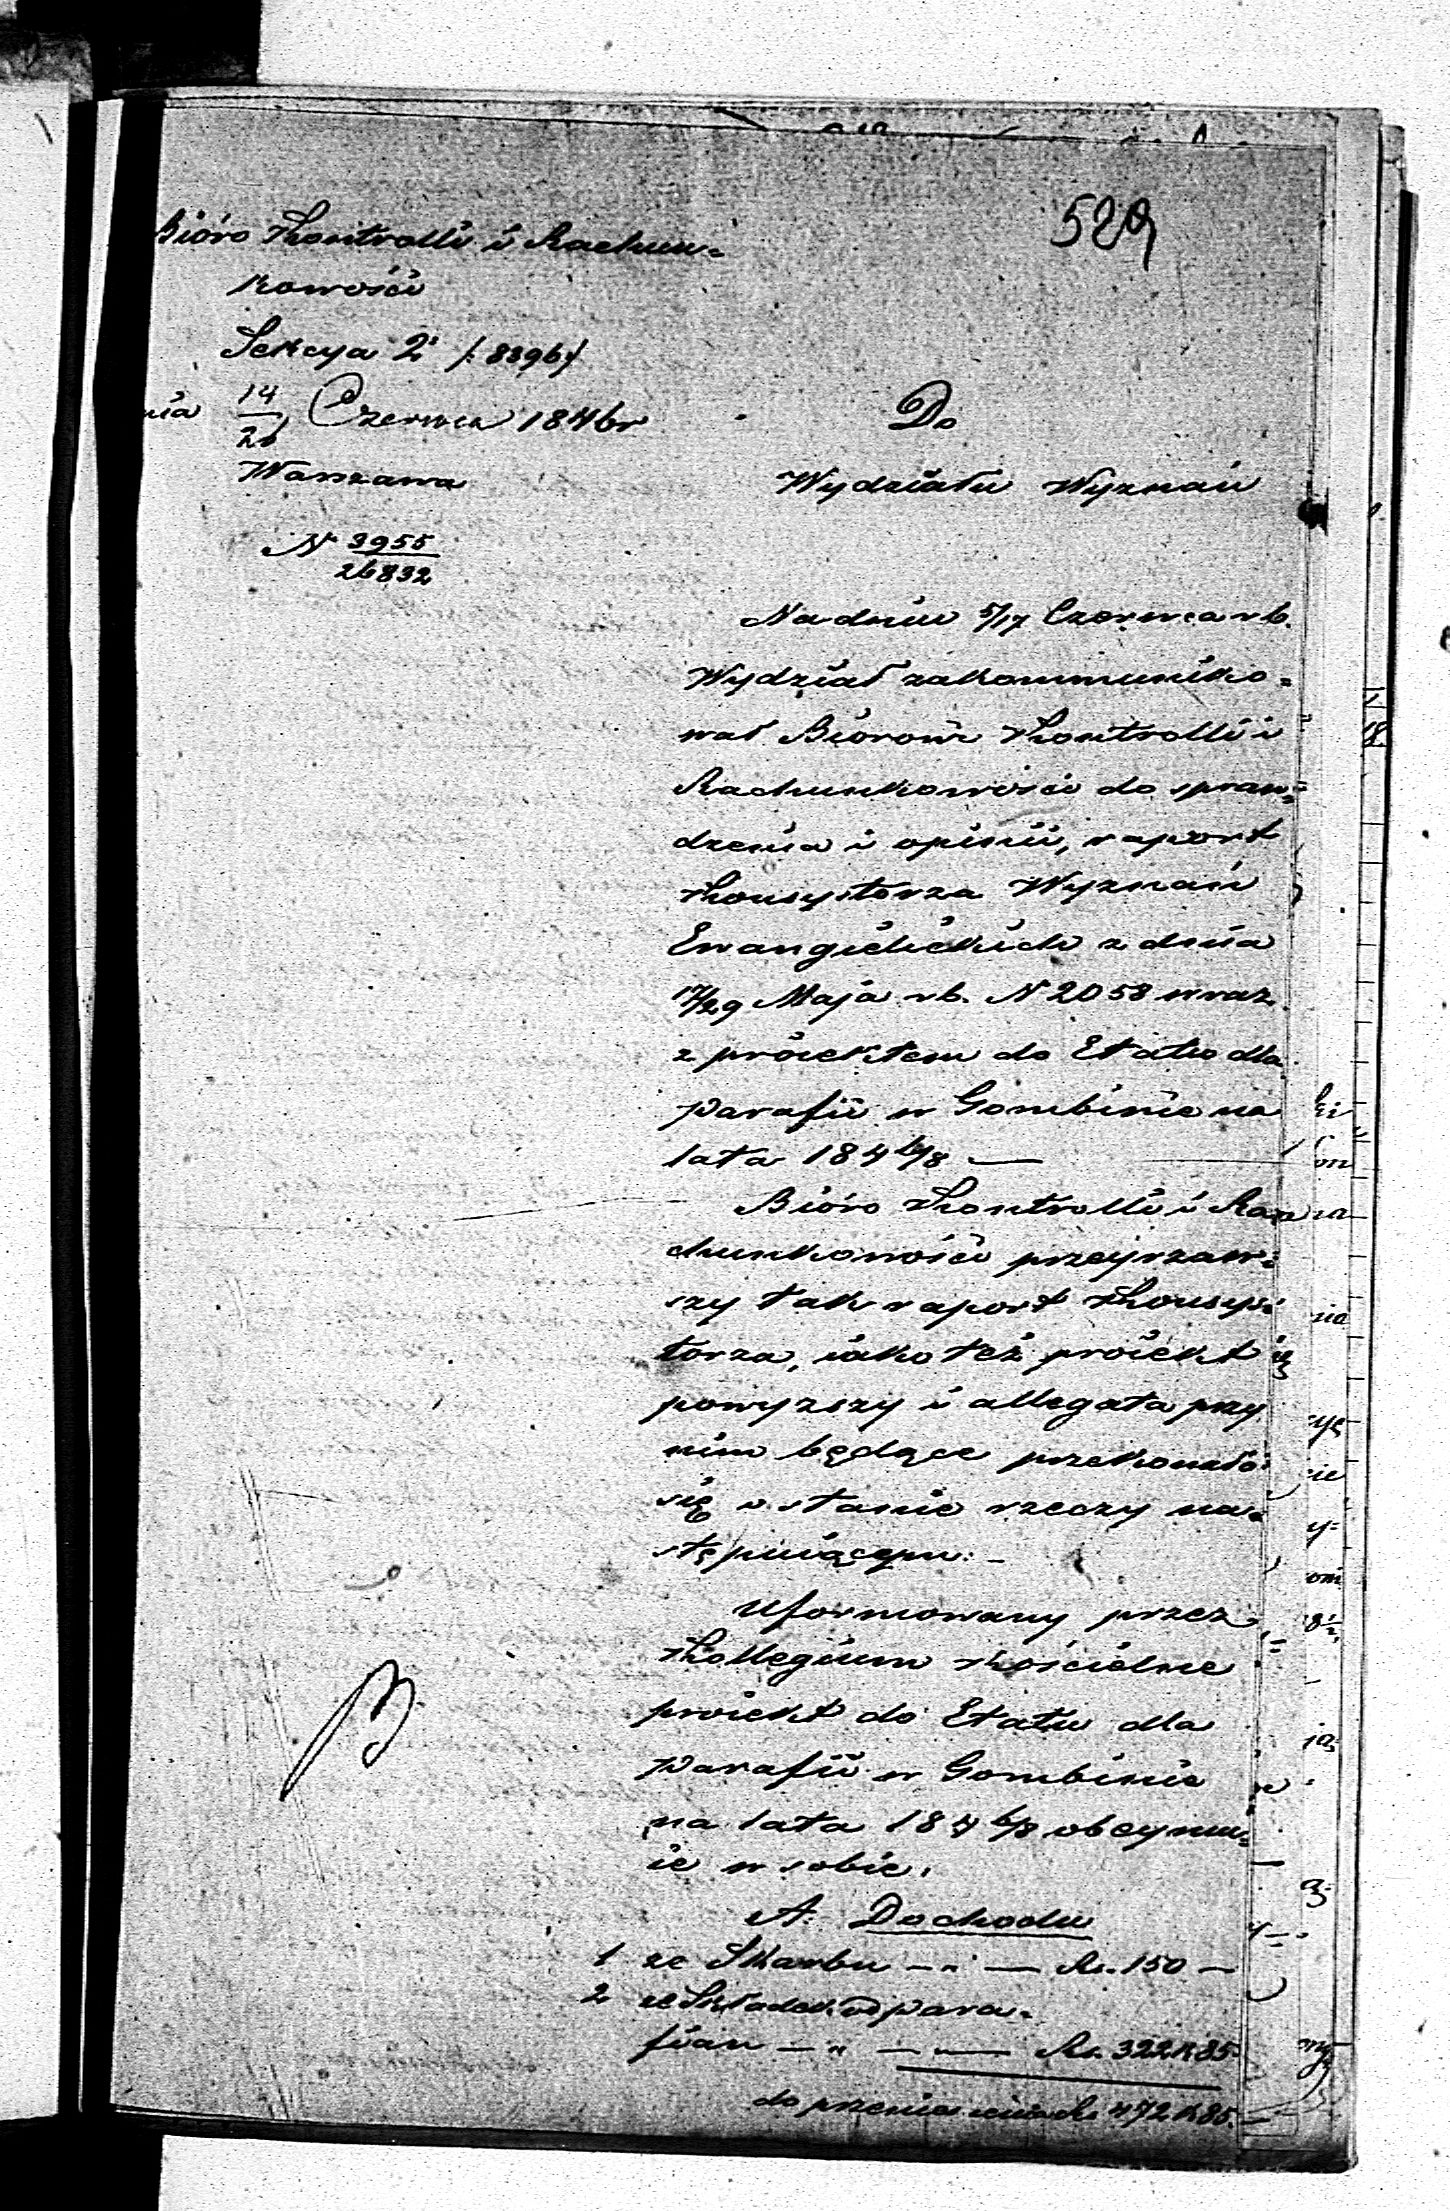 529
Bióro Kontrolli i Rachun=
kowości
Sekcya 2ª /:8396:/
nia 14/26 Czerwca 1846 r
Warszawa
N 3955/26832
Do
Wydziału Wyznań
Na dniu 5/17 Czerwca r b.
Wydział zakommuniko=
wał Biórowi Kontrolli i
Rachunkowości do spraw=
dzenia i opinii, raport
Konsystorza Wyznań
Ewangielickich z dnia
17/29 Maja r b. N 2058 wraz
z proiektem do Etatu dla
parafii w Gombinie na
lata 184 6/8 —
Bióro Kontrolli i Ra=
chunkowości przeyrzaw=
szy tak raport Konsys=
torza, iako też proiekt
powyższy i allegata przy
nim będące przekonało
się o stanie rzeczy na=
stępuiącym: –
Uformowany przez
Kollegium Kościelne
proiekt do Etatu dla
parafii w Gombinie
na lata 184 6/8 obeymu=
ie w sobie.
A. Dochodu
1 ze Skarbu — " — Rs. 150 —
2 ze Składek od para=
fian — " — " — Rs. 322 K 85.
do przeniesienia Rs 472 K 85.